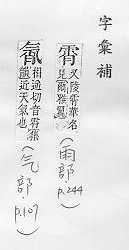 字彙補
霄 又陵霄華名
見爾雅翼
(雨部, p.244)
相邀切音霄集
韻近天氣也
(气部, p.107)